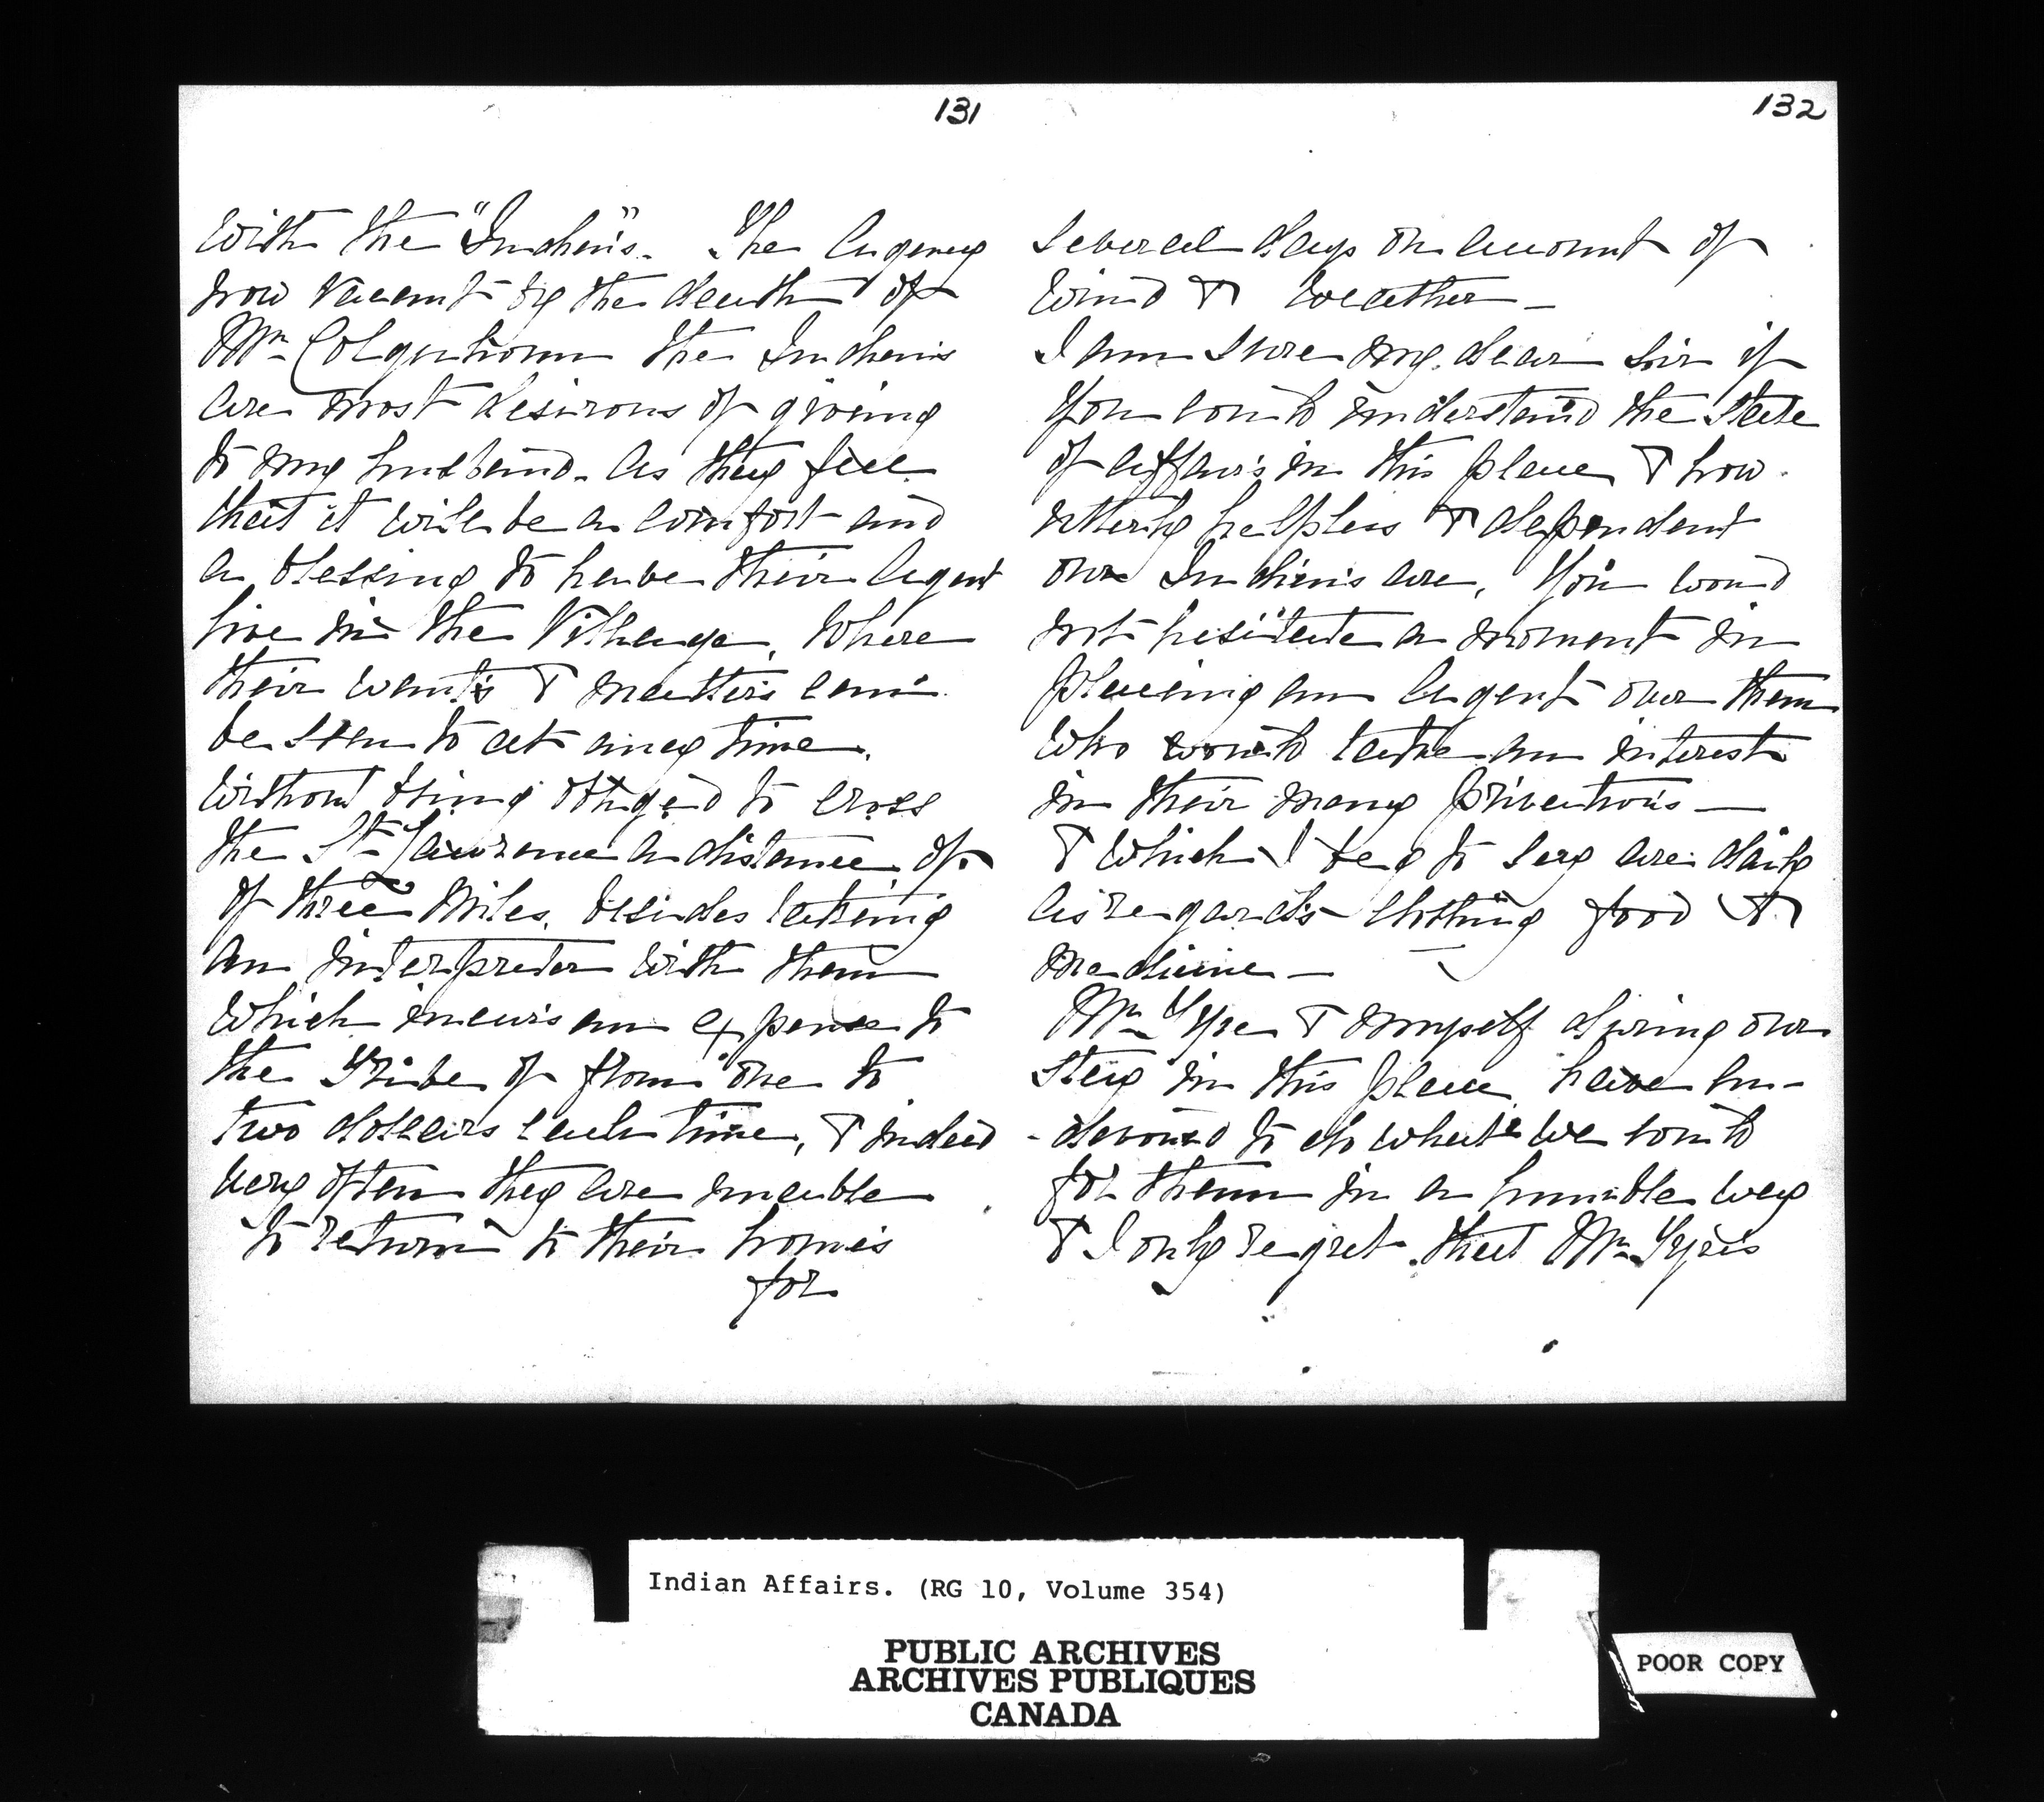 131
with the "Indians". The Agency
now vacant by the death of
Mr Colquhoun the Indians
are most desirous of giving
to my husband. as they feel
that it will be a comfort and
a blessing to have their Agent
live in the Village, where
their wants & matters can
be seen to at any time.
without being obliged to cross
the St Lawrence a distance of
of three Miles, besides taking
an interpreter with them
which incurs an expense to
the Tribe of from one to
two dollars each time, & indeed
very often they are unable
to return to their homes
for
132
several days on account of
wind & weather —
I am sure my dear Sir if
you could understand the state
of affairs in this place & how
utterly helpless & dependent
our Indians are, you would
not hesitate a moment in
placing an Agent over them
who would take an interest
in their many privations —
& which I beg to say are daily
as regards clothing food &
medicine —
Mr Tyre & myself during our
stay in this place have en-
-devored to do what we could
for them in a humble way
& I only regret that Mr Tyre's
Indian Affairs. (RG 10, Volume 354)
PUBLIC ARCHIVES
ARCHIVES PUBLIQUES
CANADA
POOR COPY